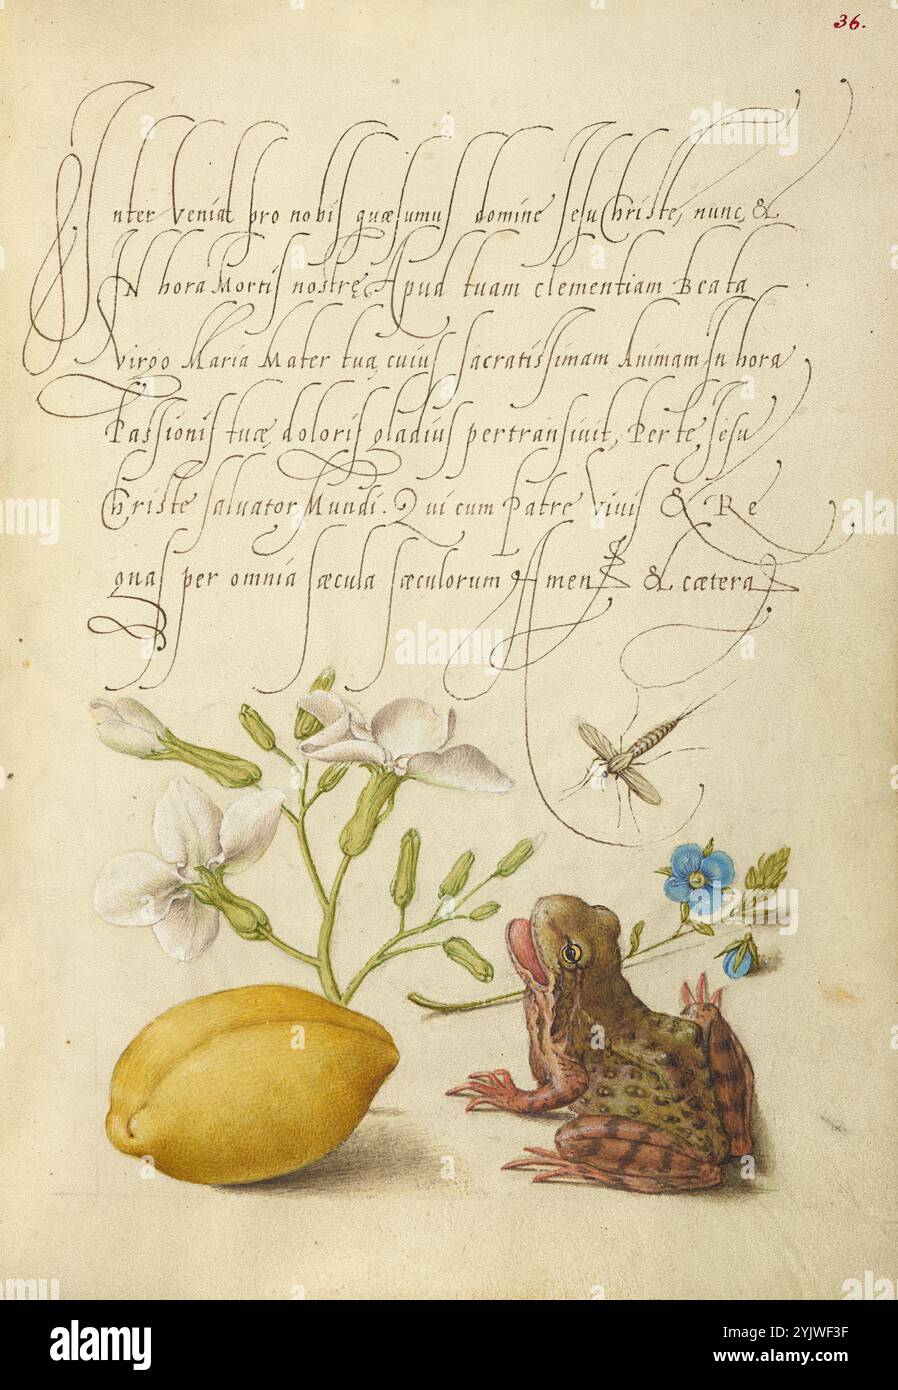 36.
Interveniat pro nobis quæsumus domine Jesu Christe, nunc, &
IN hora Mortis nostrę Apud tuam clementiam Beata
Virgo Maria Mater tua, cuius sacratissimam Animam In hora
Passionis tuæ doloris gladius pertransivit, Per te, Jesu
Christe Salvator Mundi. Qui cum Patre Vivis & Re
gnas per omnia sæcula sæculorum Amen & cætera
alamy
Image ID: 2YJWF3F
www.alamy.com